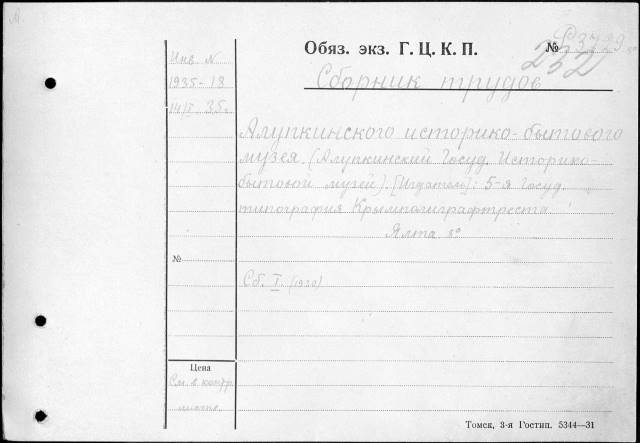 Обяз. экз. Г. Ц. К. П.
№
2521
Сборник трудов
Инв. N
1935-18
14/I 35г.
Алупкинского историко-бытового
музея. (Алупкинский Госуд. Историко-
бытовой музей). [Издатель]: 5-я Госуд.
типография Крымполиграфтреста.
Ялта. 8°
№
Сб. I. (1930)
Цена
См. в контр.
листке.
Томск, 3-я Гостип. 5344—31